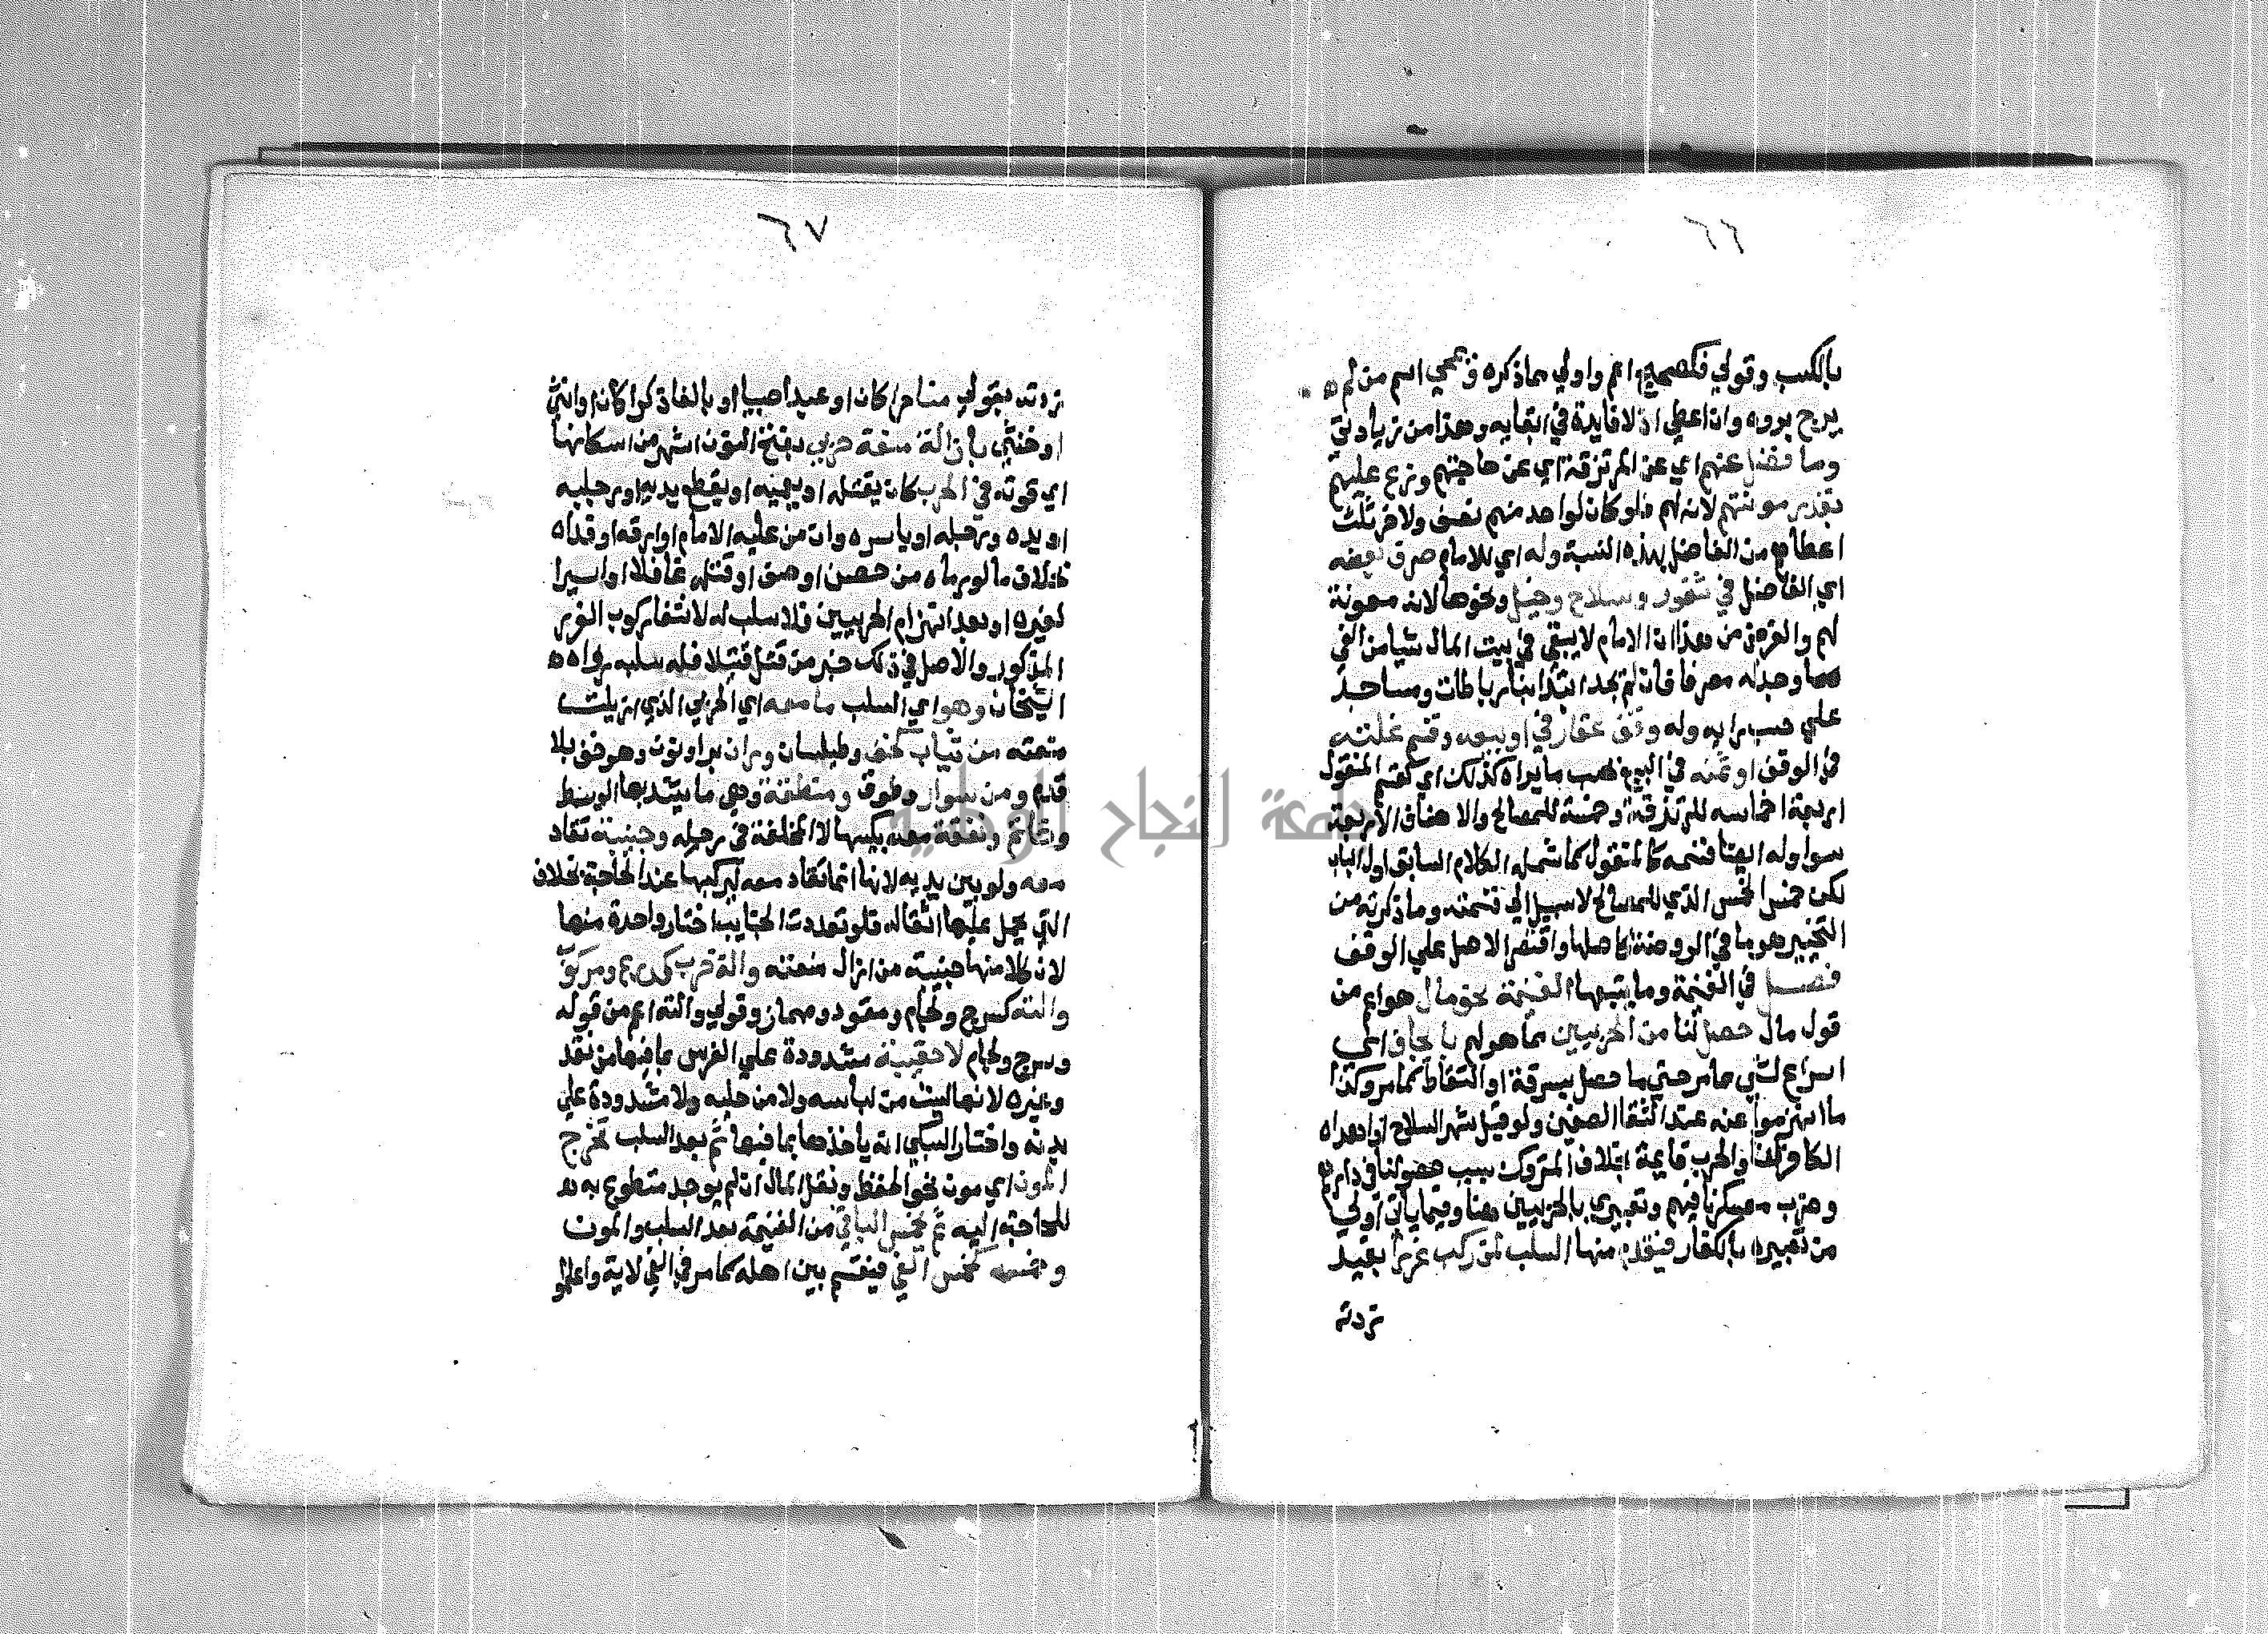 ٦٦
بالكسب وقولي فكصحيح اعم واولي مما ذكره فيمحي اسم من لم
يرج بروه وان اعطي اذ لا فايدة في ابقايه وهذا من زيادتي
وما فضل عنهم اي عن المرتزقة اي عن حاجتهم وزع عليهم
بقدر مونتهم لانه لهم فلو كان لواحد منهم نصف ولاخر ثلث
اعطاهم من الفاضل بهذه النسبة وله اي للامام صرف بعضه
اي الفاضل في ثغور وسلاح وخيل ونحوها لانه معونة
لهم والغرض من هذا ان الامام لا يبقي في بيت المال شيا من الفي
ما وجد له مصرفا فان لم يجد ابتدا بنا رباطات ومساجد
علي حسب رايه وله وقف عقار في او بيعه وقسم غلته
في الوقف او ثمنه في البيع بحسب ما يراه كذلك اي كقسم المنقول
اربعة اخماسه للمرتزقة وخمسه للمصالح والاصناف الاربعة
سوا وله ايضا قسمه كالمنقول كما شمله الكلام السابق اول الباب
لكن خمس الخمس الذي للمصالح لا سبيل الي قسمته وما ذكرته من
التخيير هو ما في الروضة كاصلها واقتصر الاصل علي الوقف
فصل في الغنيمة وما يتبعها الغنيمة نحو مال هو اعم من
قوله مال حصل لنا من الحربيين مما هو لهم بايجاف اي
اسراع لشي مما مر حتي ما حصل بسرقة او التقاط كما مر وكذا
ما انهزموا عنه عند التقا الصفين ولو قبل شهر السلاح او اهداه
الكافر لنا والحرب قايمة بخلاف المتروك بسبب حصولنا في دارهم
وضرب معسكرنا فيهم وتعبيري بالحربيين هنا وفيما ياتي اولي
من تعبيره بالكفار فيقدم منها السلب لمن ركب غررا بقيد
زدته
٦٧
زدته بقولي منا حرا كان او عبدا صبيا او بالغا ذكرا كان او انثي
او خنثي بازالة منعة حربي بفتح النون اشهر من اسكانها
اي قوته في الحرب كان يقتله او يعميه او يقطع يديه او رجليه
او يده ورجله او ياسره وان من عليه الامام او ارقه او فداه
بخلاف ما لو رماه من حصن او صف او قتله غافلا او اسيرا
لغيره او بعد انهزام الحربيين فلا سلب له لانتفا ركوب الغرر
المذكور والاصل في ذلك خبر من قتل قتيلا فله سلبه رواه
الشيخان وهو اي السلب ما معه اي الحربي الذي ازيلت
منعته من ثياب كخف وطيلسان وران برا ونون وهو خف بلا
قدم ومن سوار وطوق ومنطقة وهي ما يشد بها الوسط
وخاتم ونفقة معه بكيسها لا المخلفة في رحله وجنيبة تقاد
معه ولو بين يديه لانها انما تقاد معه ليركبها عند الحاجة بخلاف
التي يحمل عليها اثقاله فلو تعددت الجنايب اختار واحدة منها
لان كلا منها جنيبة من ازال منعته والة حرب كدرع ومركوب
والته كسرج ولجام ومقود ومهماز وقولي والته اعم من قوله
وسرج ولجام لا حقيبة مشدودة علي الفرس بما فيها من نقد
وغيره لانها ليست من لباسه ولا من حليه ولا مشدودة علي
بدنه واختار السبكي انه ياخذها بما فيها ثم بعد السلب تخرج
المون اي مون نحو الحفظ ونقل المال ان لم يوجد متطوع به
للحاجة اليه ثم يخمس الباقي من الغنيمة بعد السلب والمون
وخمسه كخمس الفي فيقسم بين اهله كما مر في الفي لاية واعلموا
جامعة النجاح الوطنية